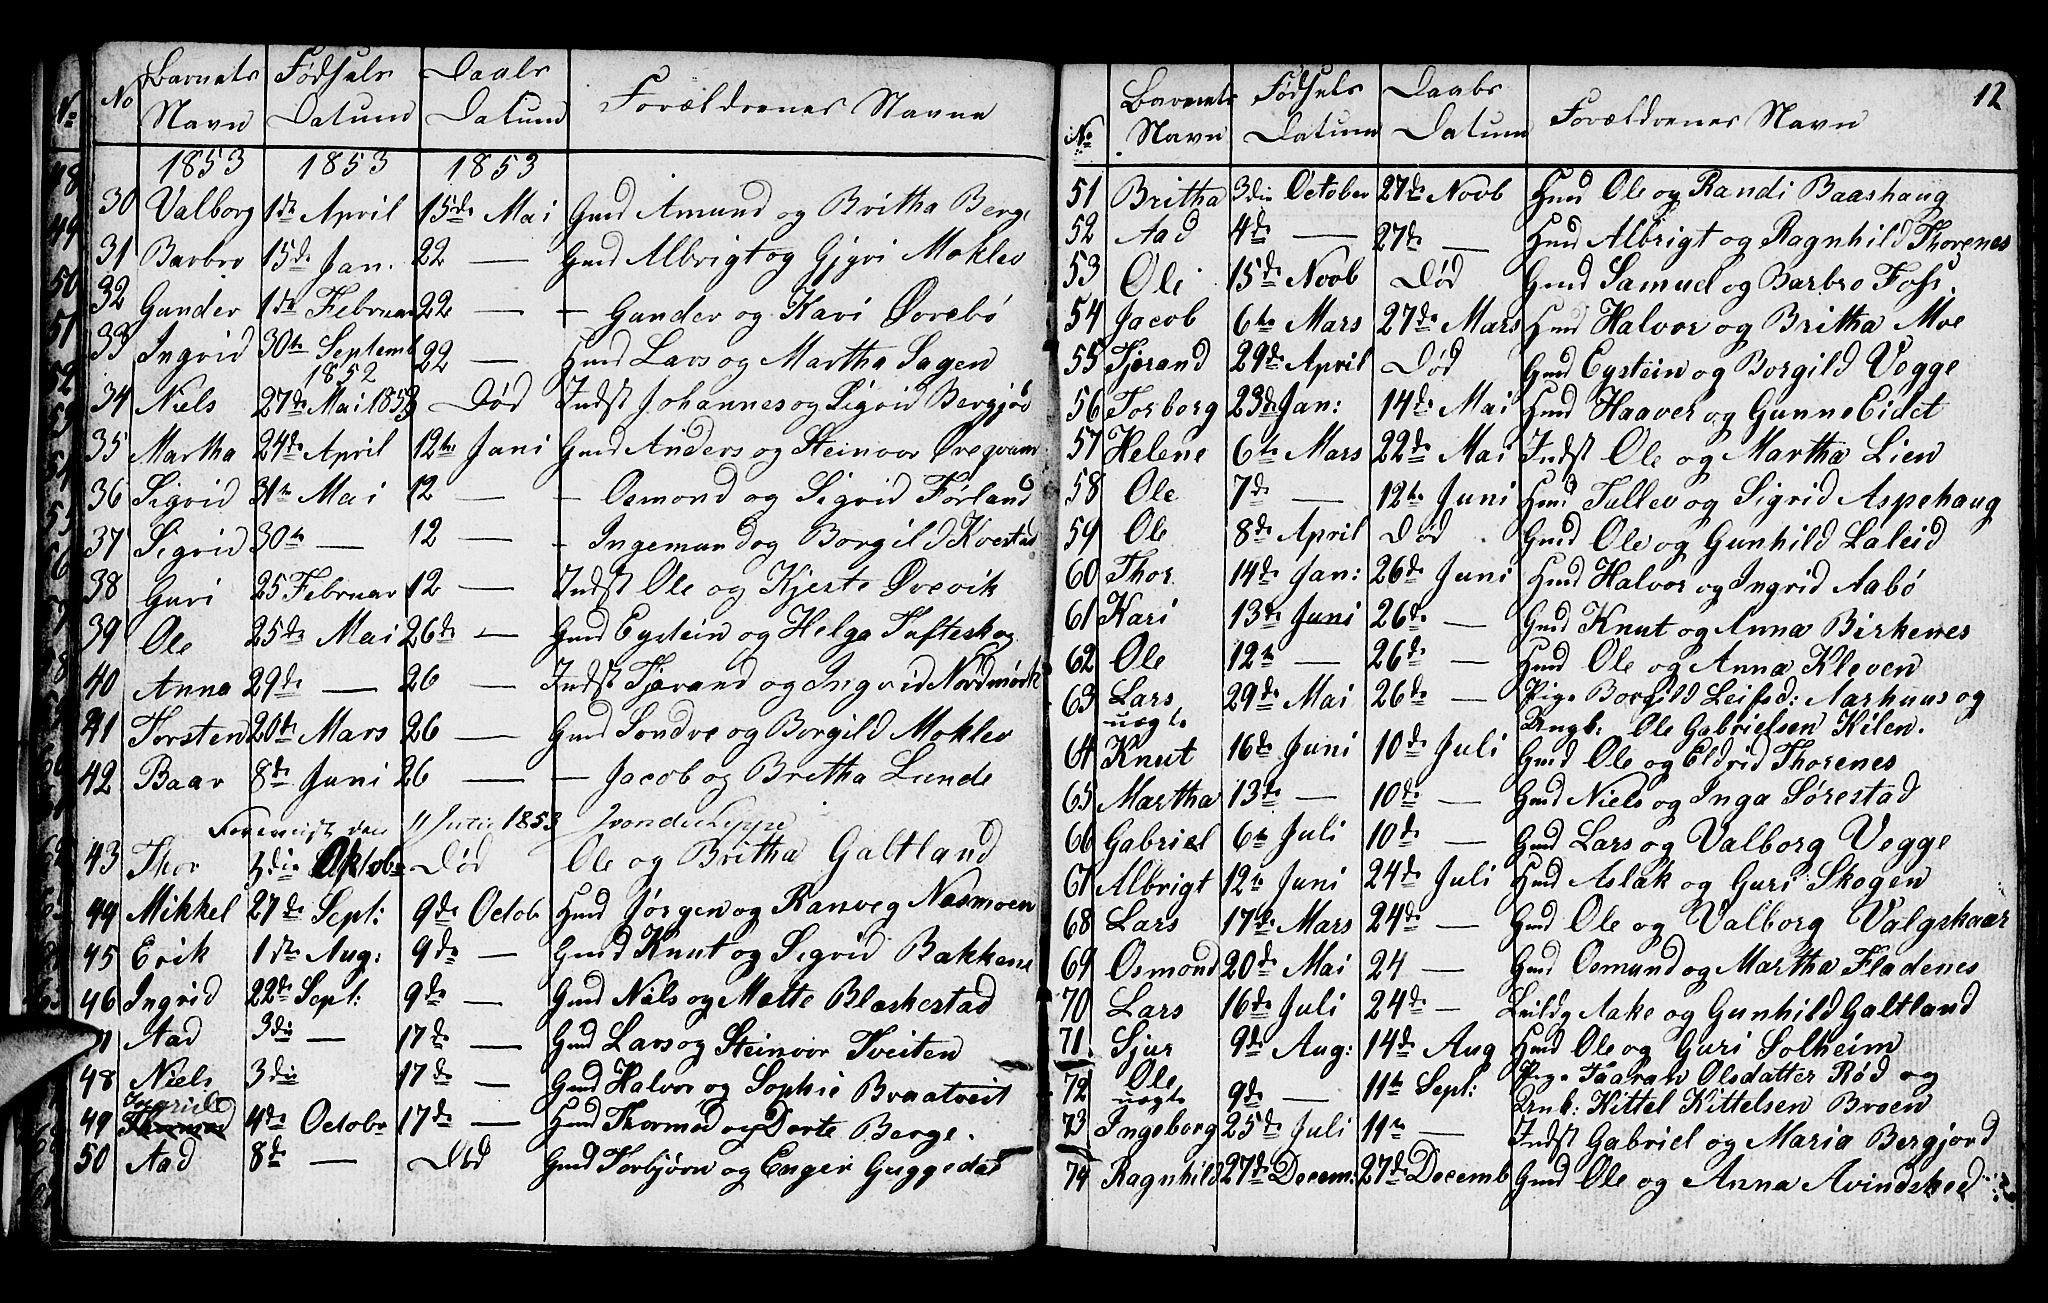 No Barnets Fødsels Daabs Forældrenes Navne
Navn Datum Datum
1853 1853 1853
30 Valborg 1ste April 15de Mai Gmd Amund og Britha Berge
31 Barbro 15de Jan. 22 — Gmd Albrigt og Gjyri Moklev
32 Gunder 1ste Februar 22 — — Gunder og Kari Ørebö
33 Ingrid 30te Septemb 22 — Hmd Lars og Martha Sagen
1852
34 Niels 27de Mai 1853 Död Indst Johannes og Sigrid Bergjör
35 Martha 24de April 12te Juni Gmd Anders og Steinvor Øveqvam
36 Sigrid 31te Mai 12 — — Osmond og Sigrid Førland
37 Sigrid 30te — 12 — — Ingemund og Borgild Kvestad
38 Guri 25 Februar 12 — Indst Ole og Kjerste Ørevik
39 Ole 25de Mai 26de — Gmd Eystein og Helga Tufteskog
40 Anna 29de — 26 — Indst Tjærand og Ingrid Nordmörk
41 Torsten 20de Mars 26 — Gmd Sondre og Borgild Moklev
42 Baar 8de Juni 26 — — Jacob og Britha Lunde
Foreviist den 11 Juli 1853
43 Thor 3die Oktobr Död Ole og Britha Galtland
44 Mikkel 27de Sept: 9de Octobr Hmd Jørgen og Ranveg Næsmoen
45 Erik 1ste Aug: 9de — Gmd Knut og Sigrid Bakkene
46 Ingrid 22de Sept: 9de — Gmd Niels og Mette Blæskestad
Aad 3die — 17de — Gmd Lars og Steinvor Tveiten
48 Niels 3die 17de — Gmd Halvor og Sophie Braatveit
Ingrid
49 Thormod 4de Octobr 17de — Hmd Thormod og Dorte Berge.
50 Aad 8de — Död Gmd Torbjørn og Enger Guggedal
12
No Barnets Fødsels Daabs Forældrenes Navn
Navn Datum Datum
51 Britha 3die October 27de Novb Hmd Ole og Randi Baashaug
52 Aad 4de — 27de — Hmd Albrigt og Ragnhild Thorenes
53 Ole 15de Novb Död Gmd Samuel og Barbro Foss.
54 Jacob 6te Mars 27de Mars Hmd Halvor og Britha Moe
55 Tjerand 29de April Död Gmd Eystein og Borgild Vegge
56 Torborg 23de Jan: 14de Mai Hmd Haaver og Gunne Eidet
57 Helene 6te Mars 22de Mai Indst Ole og Martha Lien
58 Ole 7de — 12te Juni Hmd Tallev og Sigrid Aspehaug
59 Ole 8de April Död Gmd Ole og Gunhild Laleid
60 Thor 14de Jan: 26de Juni Hmd Halvor og Ingrid Aabö
61 Kari 13de Juni 26de — Gmd Knut og Anna Birkenes
62 Ole 12te — 26de — Hmd Ole og Anna Kleven
63 Lars 29de Mai 26de — Pige Borgild Leifsd: Aarhuus og
uægte Ungk: Ole Gabrielsen Kilen.
64 Knut 16de Juni 10de Juli Gmd Ole og Eldrid Thorenes
65 Martha 13de — 10de — Gmd Niels og Inga Sørestad
66 Gabriel 6te Juli 10de — Gmd Lars og Valborg Vegge
67 Albrigt 12te Juni 24de Juli Hmd Aslak og Guri Skogen
68 Lars 17de Mars 24de — Gmd Ole og Valborg Valgskaar
69 Osmond 20de Mai 24 — Gmd Osmund og Martha Fladenes
70 Lars 16de Juli 24de — Leildg Aake og Gunhild Galtland
71. Sjur 9de Aug: 14de Aug Hmd Ole og Guri Solheim
72 Ole 9de — 11te Sept: Pige Taaran Olsdatter Röd og
uægte Unk: Kittel Kittelsen Broen
73 Ingeborg 25de Juli 11te — Indst Gabriel og Maria Bergjord
74 Ragnhild 27de Decem: 27de Decemb Gmd Ole og Anna Avindsked